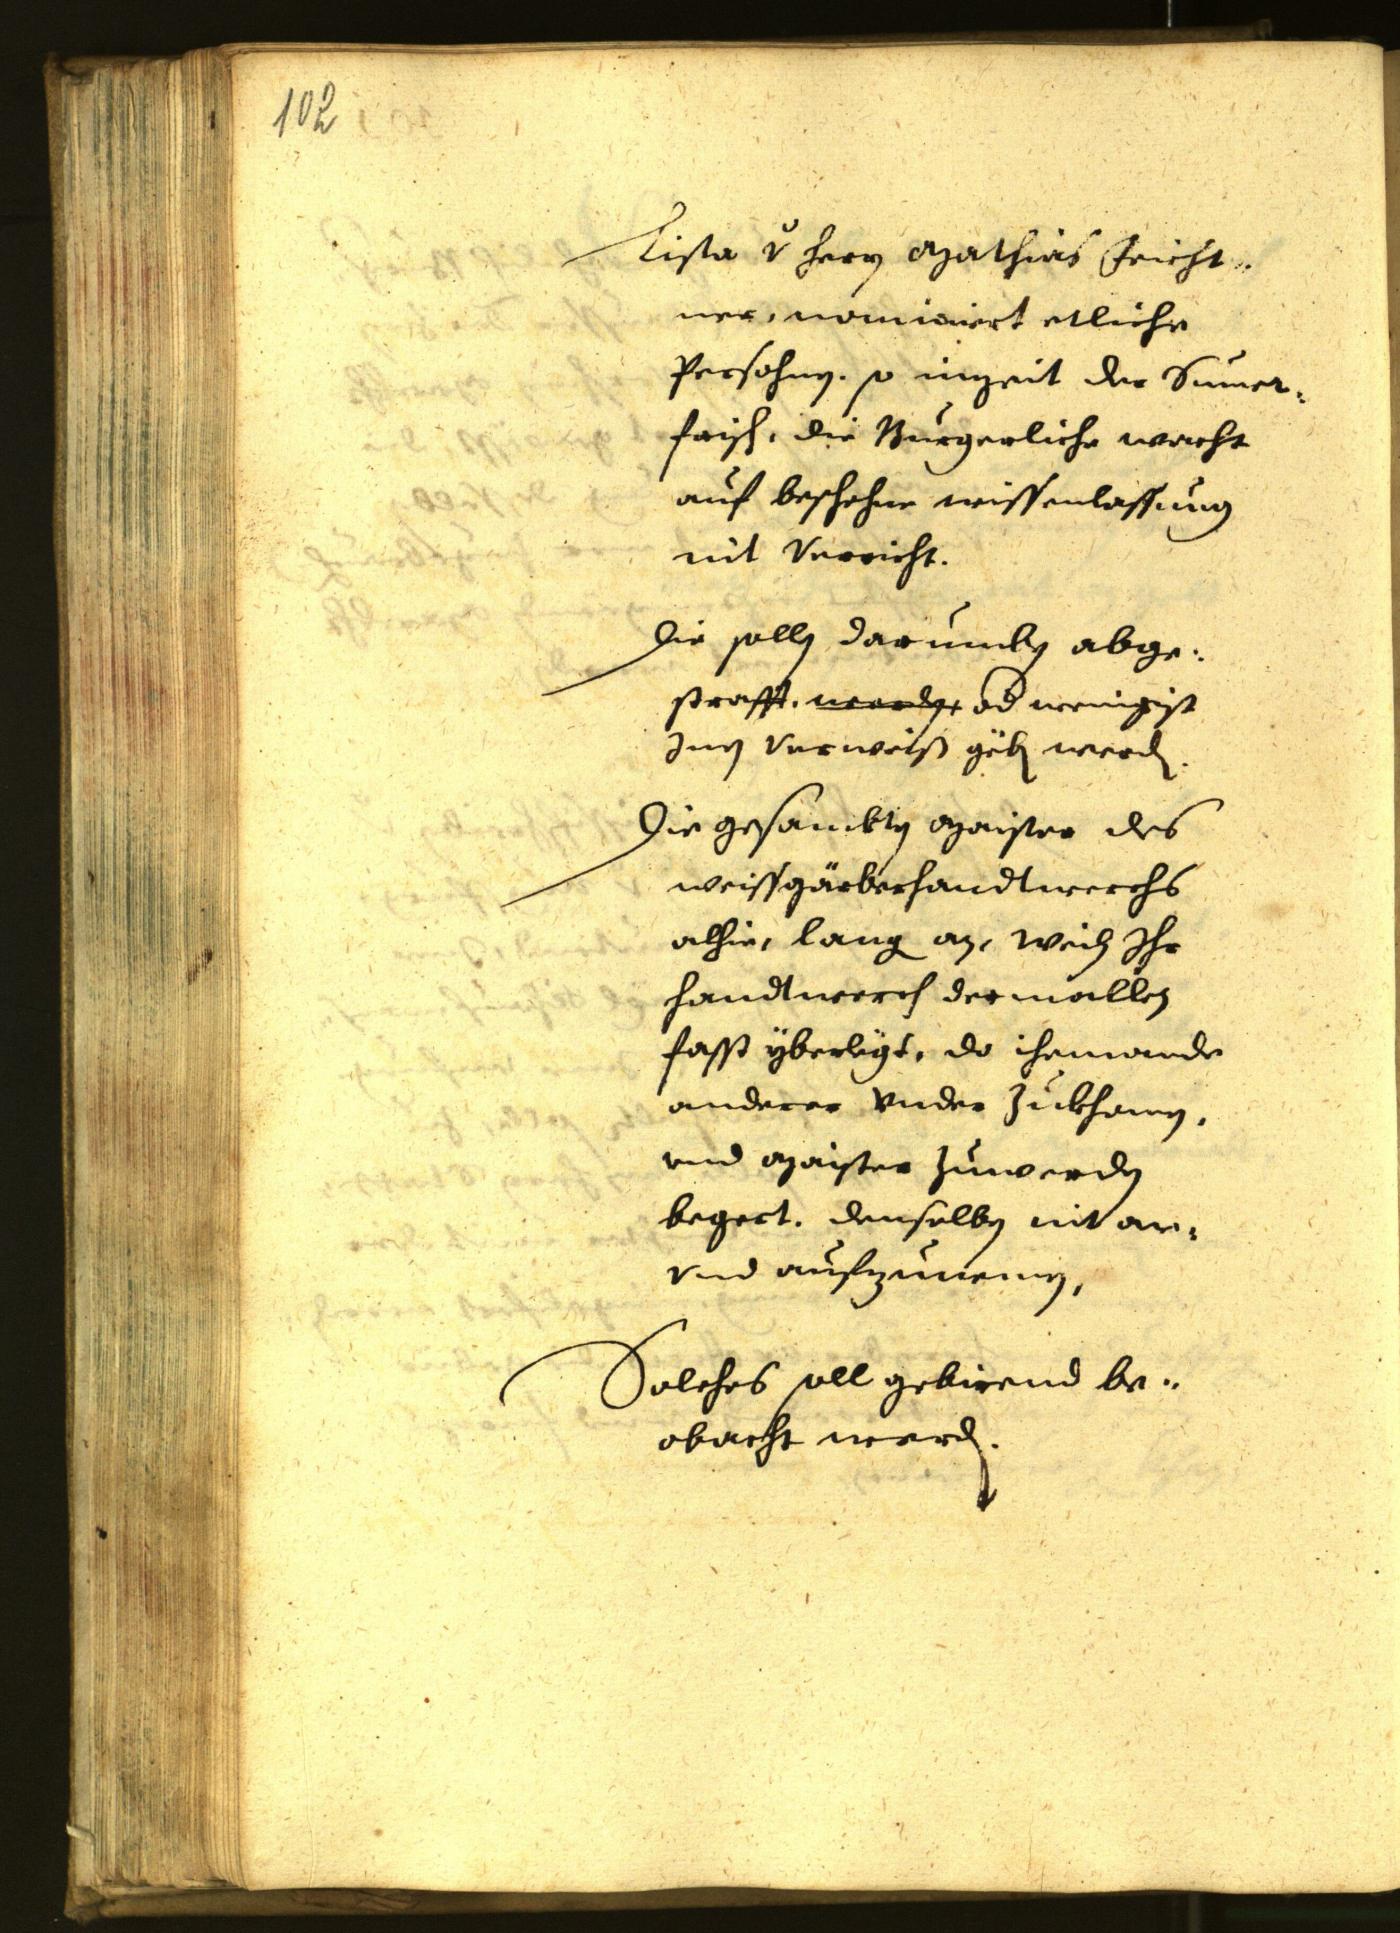 102
Lista v herrn Mathias Feicht„
ner, nominiert etliche
Persohnen. so in zeit der Sumer„
frisch, die Burgerliche wacht
auf beschehne wissenlassung
nit Verricht.
Die sollen darumben abge„
strafft. werden, od wenigist
Inen Verweiß gebn werdn.
Die gesambten Maister des
weissgärberhandtwerchs
alhie, lang an, weiln Ihr
handtwerch dermallen
fasst yberlegt, do ihemande
anderer vnder Zukhomen,
vnd Maister Zuwerden
begert. denselben nit an„
vnd aufzunemen,
Solches soll gebirend be„
obacht werdn.